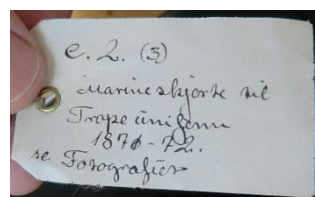 e. 2. (3)
Marineskjorte til
Trapeuniform
1870-72.
se Fotografier